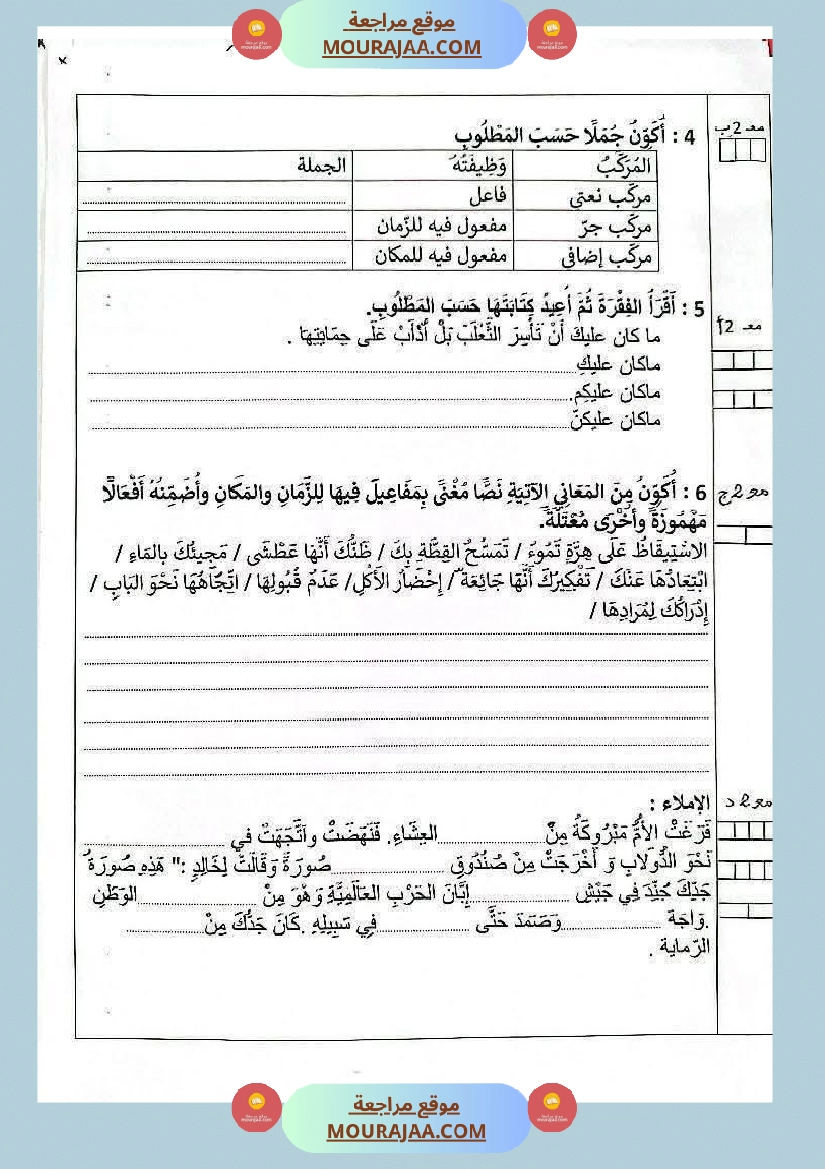 موقع مراجعة
MOURAJAA.COM
معـ 2ب
4 : أُكَوِّنُ جُمَلًا حَسَبَ المَطْلُوبِ
المُرَكَّبُ وَظِيفَتُهُ الجملة
مركّب نعتي فاعل
مركّب جرّ مفعول فيه للزّمان
مركّب إضافي مفعول فيه للمكان
5 : أَقْرَأُ الفِقْرَةَ ثُمَّ أُعِيدُ كِتَابَتَهَا حَسَبَ المَطْلُوبِ.
معـ 2أ
ما كان عليكَ أَنْ تَأْسِرَ الثَّعْلَبَ بَلْ أَدْأَبْ عَلَى حِمَايَتِهَا .
ماكان عليكِ
ماكان عليكم.
ماكان عليكنّ
6 : أُكَوِّنُ مِنَ المَعَانِي الآتِيَةِ نَصًّا مُغْنًى بِمَفَاعِيلَ فِيهَا لِلزَّمَانِ والمَكَانِ وأُضَمِّنُهُ أَفْعَالًا
معـ 2ج
مَهْمُوزَةً وأُخْرَى مُعْتَلَّةً.
الاسْتِيقَاظُ عَلَى هِرَّةٍ تَمُوءُ / تَمَسُّحُ القِطَّةِ بِكَ / ظَنُّكَ أَنَّهَا عَطْشَى / مَجِيئُكَ بِالمَاءِ /
ابْتِعَادُهَا عَنْكَ / تَفْكِيرُكَ أَنَّهَا جَائِعَةٌ / إِحْضَارُ الأَكْلِ/ عَدَمُ قَبُولِهَا / اتِّجَاهُهَا نَحْوَ البَابِ /
إِدْرَاكُكَ لِمُرَادِهَا /
الإملاء :
معـ 2 د
فَرَغَتْ الأُمُّ مَبْرُوكَةُ مِنْ العِشَاءِ. فَنَهَضَتْ واتَّجَهَتْ في
نَحْوَ الدُّولَابِ وَ أَخْرَجَتْ مِنْ صُنْدُوقِ صُورَةً وَقَالَتْ لِخَالِدٍ :" هَذِهِ صُورَةُ
جَدِّكَ جُنِّدَ فِي جَيْشِ إِبَّانَ الحَرْبِ العَالَمِيَّةِ وَهُوَ مِنْ الوَطَنِ
.وَاجَهَ وَصَمَدَ حَتَّى فِي سَبِيلِهِ .كَانَ جَدُّكَ مِنْ
الرّماية .
موقع مراجعة
MOURAJAA.COM